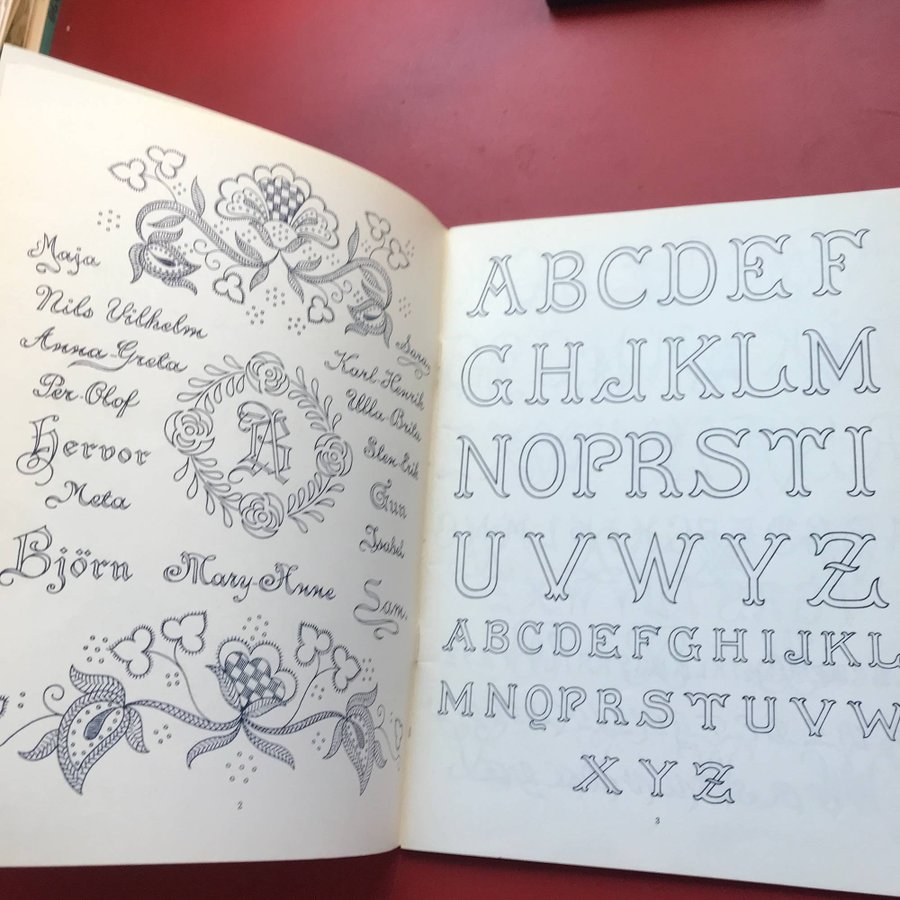 Maja
Nils Vilhelm
Anna-Greta
Per-Olof
Hervor
Meta
Björn
Mary-Anne
Karl-Henrik
Ulla-Brita
Sten Erik
Gun
2
ABCDEF
GHJKLM
NOPRSTI
UVWYZ
ABCDEFGHIJKL
MNQPRSTUVW
XYZ
3